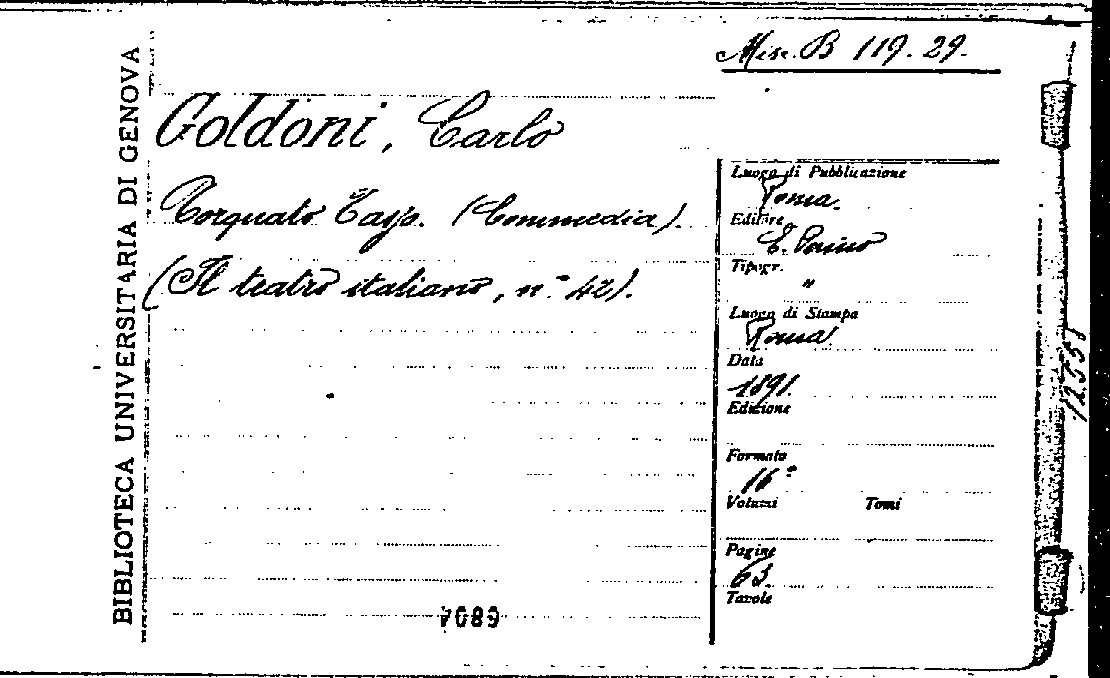 Misc. B 119. 29.
BIBLIOTECA UNIVERSITARIA DI GENOVA
Goldoni, Carlo
Torquato Tasso. (Commedia).
(Il teatro italiano, n.° 42).
Luogo di Pubblicazione
Roma.
Editore
E. Perino
Tipogr.
"
Luogo di Stampa
Roma
Data
1891.
Edizione
Formato
16°
Volumi Tomi
Pagine
63.
Tavole